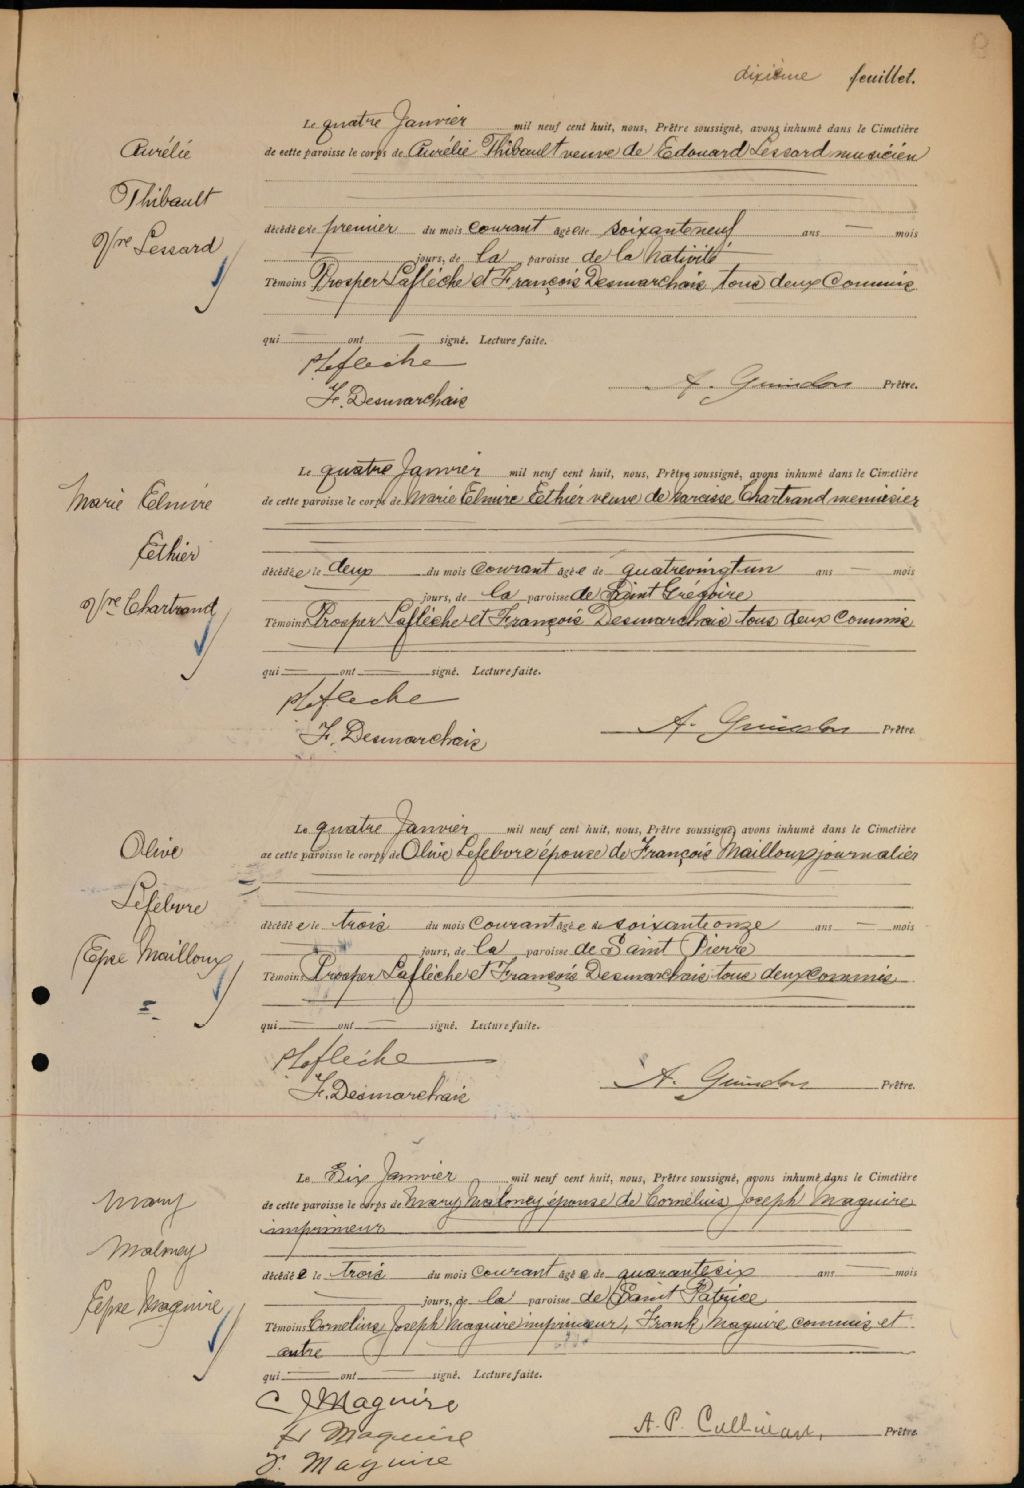 dixième feuillet.
Aurélie
Thibault
Vve Lessard
Le quatre Janvier mil neuf cent huit, nous, Prêtre soussigné, avons inhumé dans le Cimetière
de cette paroisse le corps de Aurélie Thibault veuve de Edouard Lessard musicien
décédée le premier du mois courant agée de soixanteneuf ans — mois
— jours, de la paroisse de la Nativité
Témoins Prosper Laflèche et François Desmarchais tous deux Commis
qui — ont — signé. Lecture faite.
P Laflèche
F. Desmarchais
A. Guindon Prêtre.
Marie Elmire
Ethier
Vve Chartrand
Le quatre Janvier mil neuf cent huit, nous, Prêtre soussigné, avons inhumé dans le Cimetière
de cette paroisse le corps de Marie Elmire Ethier veuve de Narcisse Chartrand menuisier
décédée le deux du mois courant âgée de quatrevingtun ans — mois
— jours, de la paroisse de Saint Grégoire
Témoins Prosper Laflèche et François Desmarchais tous deux commis
qui — ont — signé. Lecture faite.
P Laflèche
F. Desmarchais
A. Guindon Prêtre.
Olive
Lefebvre
Epse Mailloux
Le quatre Janvier mil neuf cent huit, nous, Prêtre soussigné, avons inhumé dans le Cimetière
de cette paroisse le corps de Olive Lefebvre épouse de François Mailloux journalier
décédée le trois du mois courant âgée de soixanteonze ans — mois
— jours, de la paroisse de Saint Pierre
Témoins Prosper Laflèche et François Desmarchais tous deux commis
qui — ont — signé. Lecture faite.
P Laflèche
F. Desmarchais
A. Guindon Prêtre.
Mary
Maloney
Epse Maguire
Le Six Janvier mil neuf cent huit, nous, Prêtre soussigné, avons inhumé dans le Cimetière
de cette paroisse le corps de Mary Maloney épouse de Cornélius Joseph Maguire
imprimeur
décédée le trois du mois courant âgée de quarantesix ans — mois
— jours, de la paroisse de Saint Patrice
Témoins Cornelius Joseph Maguire imprimeur, Frank Maguire commis et
autre
qui — ont — signé. Lecture faite.
C J Maguire
F Maguire
J. Maguire
A. P. Cullinan, Prêtre